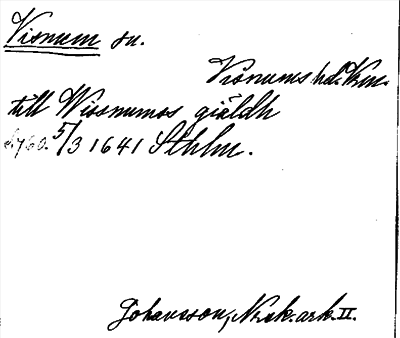 Visnum sn.
Visnums hd. Krm.
till Wissnumss giäldh
s. 760. 5/3 1641 Sthlm.
Johansson, Norsk. ark. II.